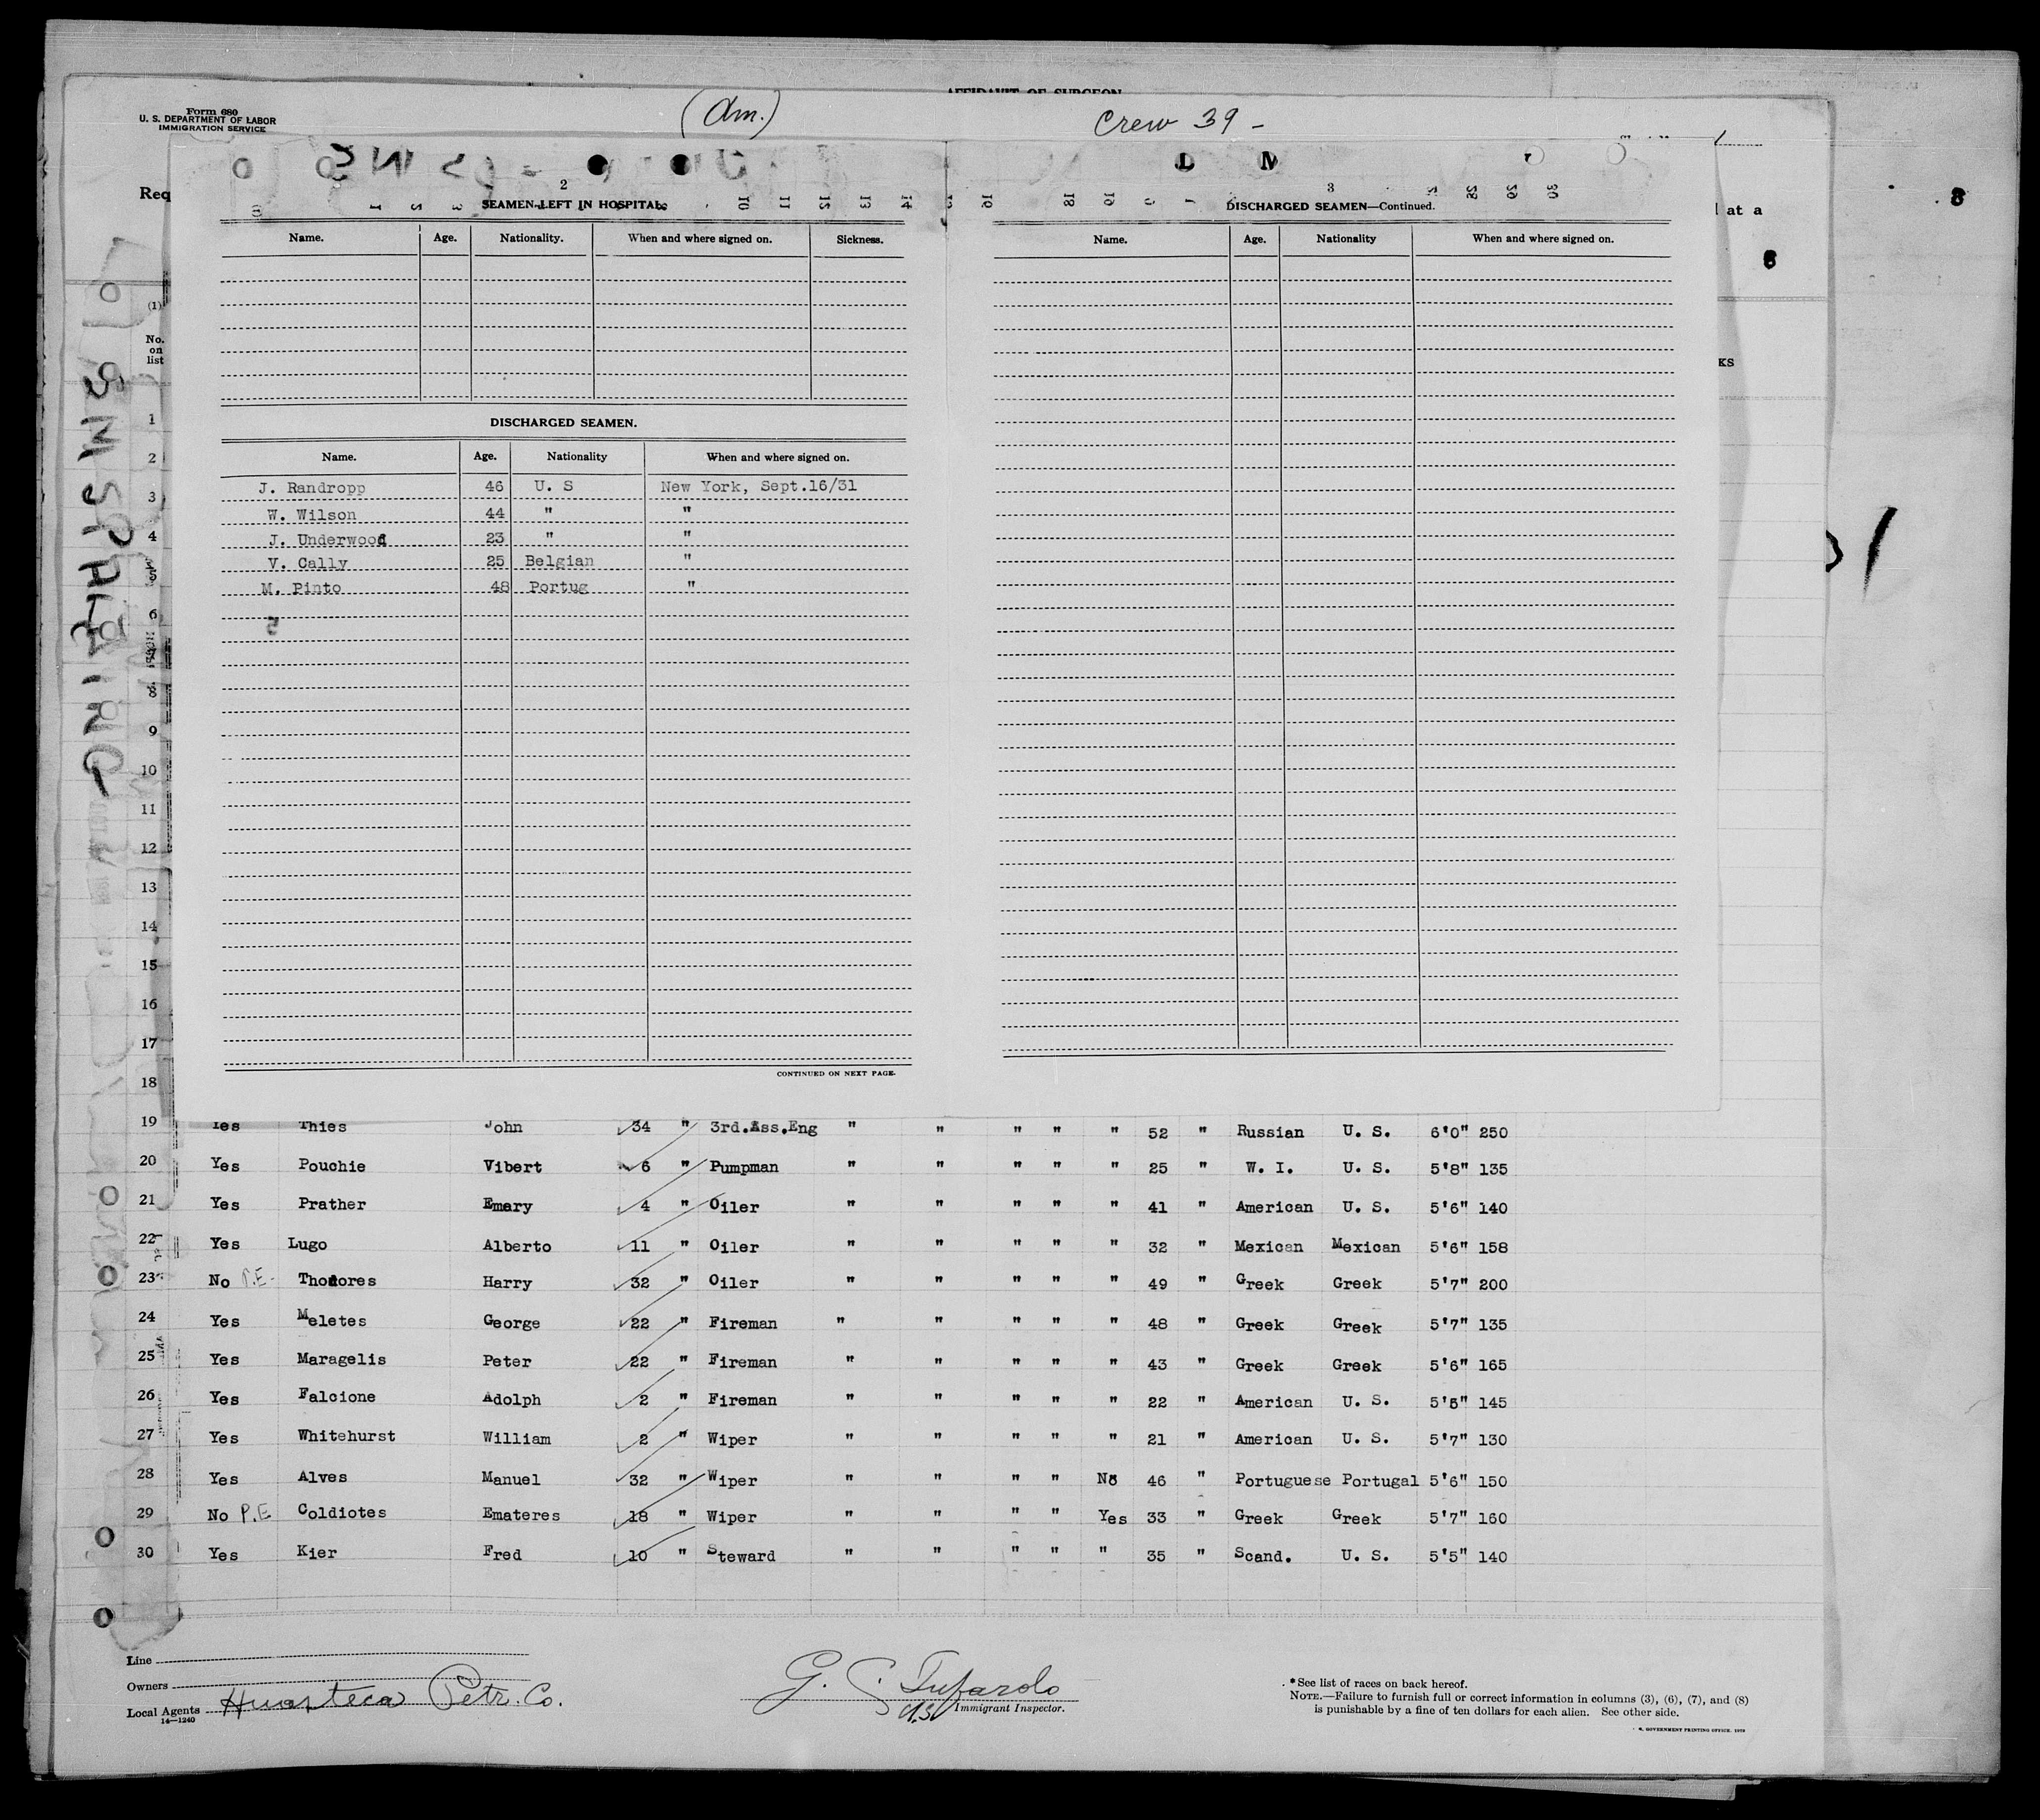 AFFIDAVIT OF SURGEON
Form 680
U. S. DEPARTMENT OF LABOR
IMMIGRATION SERVICE
(Am.)
Crew 39 -
Req
at a
8
2
SEAMEN LEFT IN HOSPITAL.
Name. Age. Nationality. When and where signed on. Sickness.
DISCHARGED SEAMEN.
Name. Age. Nationality When and where signed on.
J. Randropp 46 U. S New York, Sept.16/31
W. Wilson 44 " "
J. Underwood 23 " "
V. Cally 25 Belgian "
M. Pinto 48 Portug "
CONTINUED ON NEXT PAGE.
3
DISCHARGED SEAMEN—Continued.
Name. Age. Nationality When and where signed on.
KS
(1)
No.
on
list
1
2
3
4
5
6
8
9
10
11
12
13
14
15
16
17
18
19 Yes Thies John 34 " 3rd.Ass.Eng " " " " " 52 " Russian U. S. 6'0" 250
20 Yes Pouchie Vibert 6 " Pumpman " " " " " 25 " W. I. U. S. 5'8" 135
21 Yes Prather Emary 4 " Oiler " " " " " 41 " American U. S. 5'6" 140
22 Yes Lugo Alberto 11 " Oiler " " " " " 32 " Mexican Mexican 5'6" 158
23 No P.E. Thodores Harry 32 " Oiler " " " " " 49 " Greek Greek 5'7" 200
24 Yes Meletes George 22 " Fireman " " " " " 48 " Greek Greek 5'7" 135
25 Yes Maragelis Peter 22 " Fireman " " " " " 43 " Greek Greek 5'6" 165
26 Yes Falcione Adolph 2 " Fireman " " " " " 22 " American U. S. 5'5" 145
27 Yes Whitehurst William 2 " Wiper " " " " " 21 " American U. S. 5'7" 130
28 Yes Alves Manuel 32 " Wiper " " " " No 46 " Portuguese Portugal 5'6" 150
29 No P.E Coldiotes Emateres 18 " Wiper " " " " Yes 33 " Greek Greek 5'7" 160
30 Yes Kier Fred 10 " Steward " " " " " 35 " Scand. U. S. 5'5" 140
Line
Owners
Local Agents Huasteca Petr. Co.
14—1240
G. C. Tufarolo
Immigrant Inspector.
*See list of races on back hereof.
NOTE.—Failure to furnish full or correct information in columns (3), (6), (7), and (8)
is punishable by a fine of ten dollars for each alien. See other side.